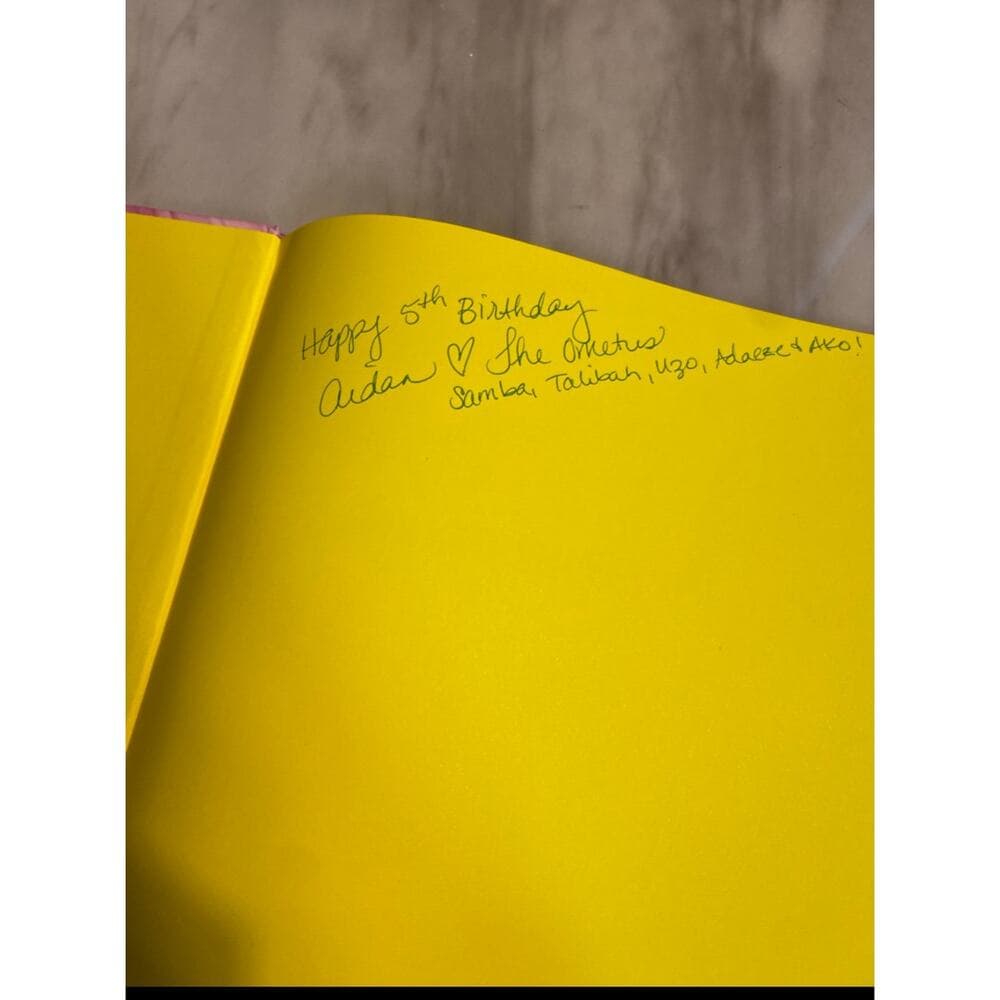 Happy 5th Birthday
Aidan ♡ The Ometus
Samba, Talibah, Uzo, Adaeze & Ako!